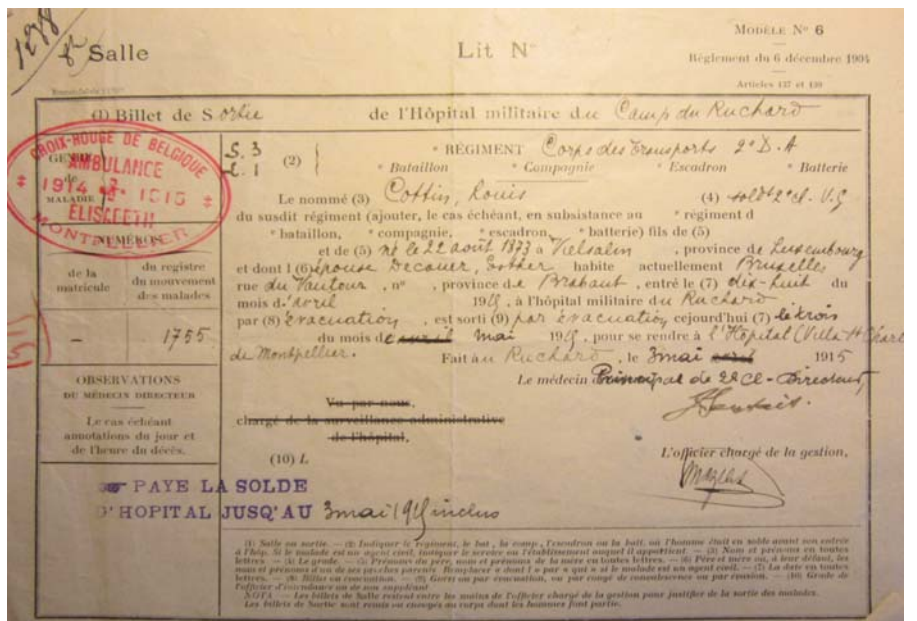 1278
Salle
Lit N°
MODÈLE N° 6
Règlement du 6 décembre 1904
Articles 137 et 139
(1) Billet de Sortie de l'Hôpital militaire du Camp du Ruchard
CROIX-ROUGE DE BELGIQUE
AMBULANCE
1914 1915
ELISABETH
MONTPELLIER
GENRE
de
MALADIE
S. 3
(2)
° RÉGIMENT Corps des Transports 2e D. A
° Bataillon ° Compagnie ° Escadron ° Batterie
Le nommé (3) Cottin, Louis (4) soldt 2e cl. V.G
du susdit régiment (ajouter, le cas échéant, en subsistance au ° régiment d
° bataillon, ° compagnie, ° escadron, ° batterie) fils de (5)
et de (5) né le 22 août 1873 à Vielsalm, province de Luxembourg
et dont l (6) épouse Decouer, Esther habite actuellement Bruxelles
rue du Vautour, n° , province de Brabant, entré le (7) dix-huit du
mois d'avril 1915, à l'hôpital militaire du Ruchard
par (8) évacuation, est sorti (9) par évacuation cejourd'hui (7) le trois
du mois de mai 1915, pour se rendre à l'Hôpital (Villa St Charles
de Montpellier. Fait au Ruchard, le 3 mai 1915
NUMÉROS
de la
matricule
du registre
du mouvement
des malades
-
1755
115
OBSERVATIONS
DU MÉDECIN DIRECTEUR
Le cas échéant
annotations du jour et
de l'heure du décès.
Le médecin Principal de 2e Cl - Directeur,
Vu par nous,
chargé de la surveillance administrative
de l'hôpital,
(10) L
L'officier chargé de la gestion,
PAYE LA SOLDE
D'HOPITAL JUSQ'AU 3 mai 1915 inclus
(1) Salle ou sortie. — (2) Indiquer le régiment, le bat., la comp., l'escadron ou la batt. où l'homme était en solde avant son entrée
à l'hôp. Si le malade est un agent civil, indiquer le service ou l'établissement auquel il appartient. — (3) Nom et prénoms en toutes
lettres. — (4) Le grade. — (5) Prénoms du père, nom et prénoms de la mère en toutes lettres. — (6) Père et mère ou, à leur défaut, les
nom et prénoms d'un de ses proches parents. Remplacer « dont l » par « qui » si le malade est un agent civil. — (7) La date en toutes
lettres. — (8) Billet ou évacuation. — (9) Guéri ou par évacuation, ou par congé de convalescence ou par évasion. — (10) Grade de
l'officier d'intendance ou de son suppléant
NOTA — Les billets de Salle restent entre les mains de l'officier chargé de la gestion pour justifier de la sortie des malades.
Les billets de Sortie sont remis ou envoyés au corps dont les hommes font partie.